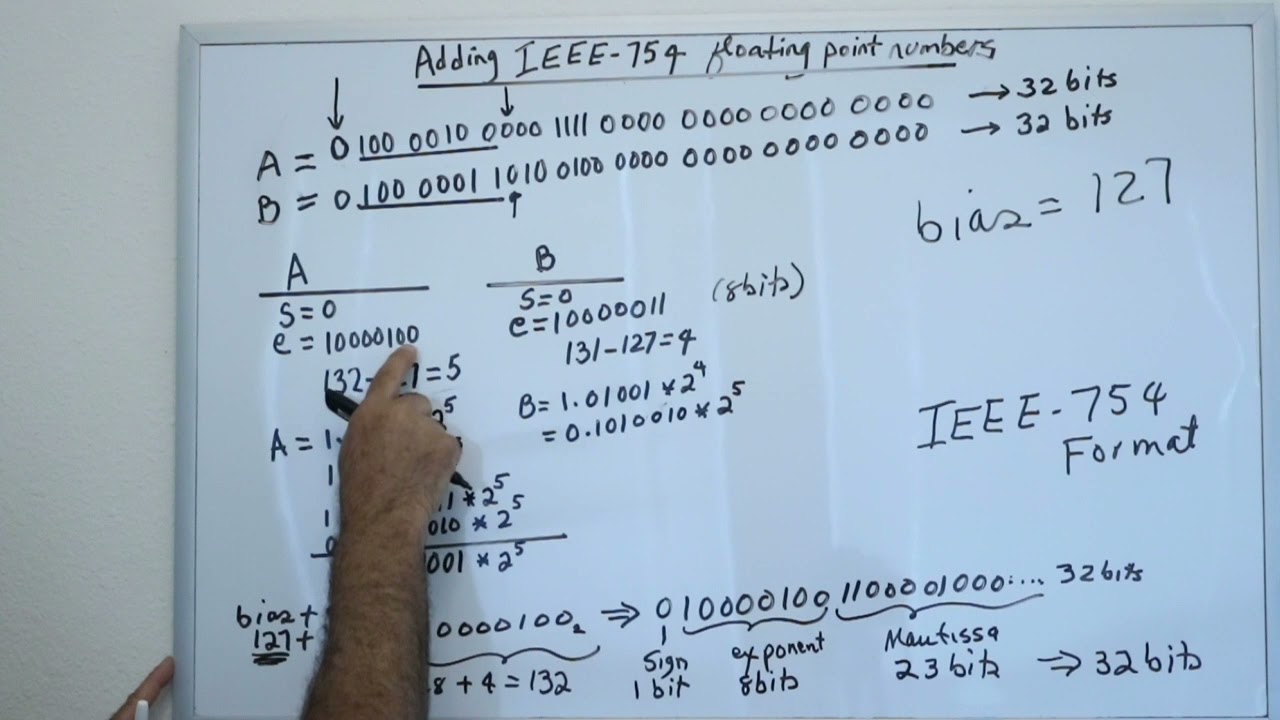 Adding IEEE-754 floating point numbers
A = 0 100 0010 0000 1111 0000 0000 0000 0000 → 32 bits
B = 0 100 0001 1010 0100 0000 0000 0000 0000 → 32 bits
bias = 127
A
S = 0
e = 10000100
132- 7 = 5
A = 1. 2^5
1
1 .1 * 2^5
1 010 * 2^5
0 001 * 2^5
B
S = 0
e = 10000011 (8bits)
131-127 = 4
B = 1.01001 * 2^4
= 0.1010010 * 2^5
IEEE-754
Format
bias + 0000100₂ ⇒ 0 10000100 1100001000.... 32 bits
127 + 8 + 4 = 132
Sign
1 bit
exponent
8bits
Mantissa
23 bits ⇒ 32 bits